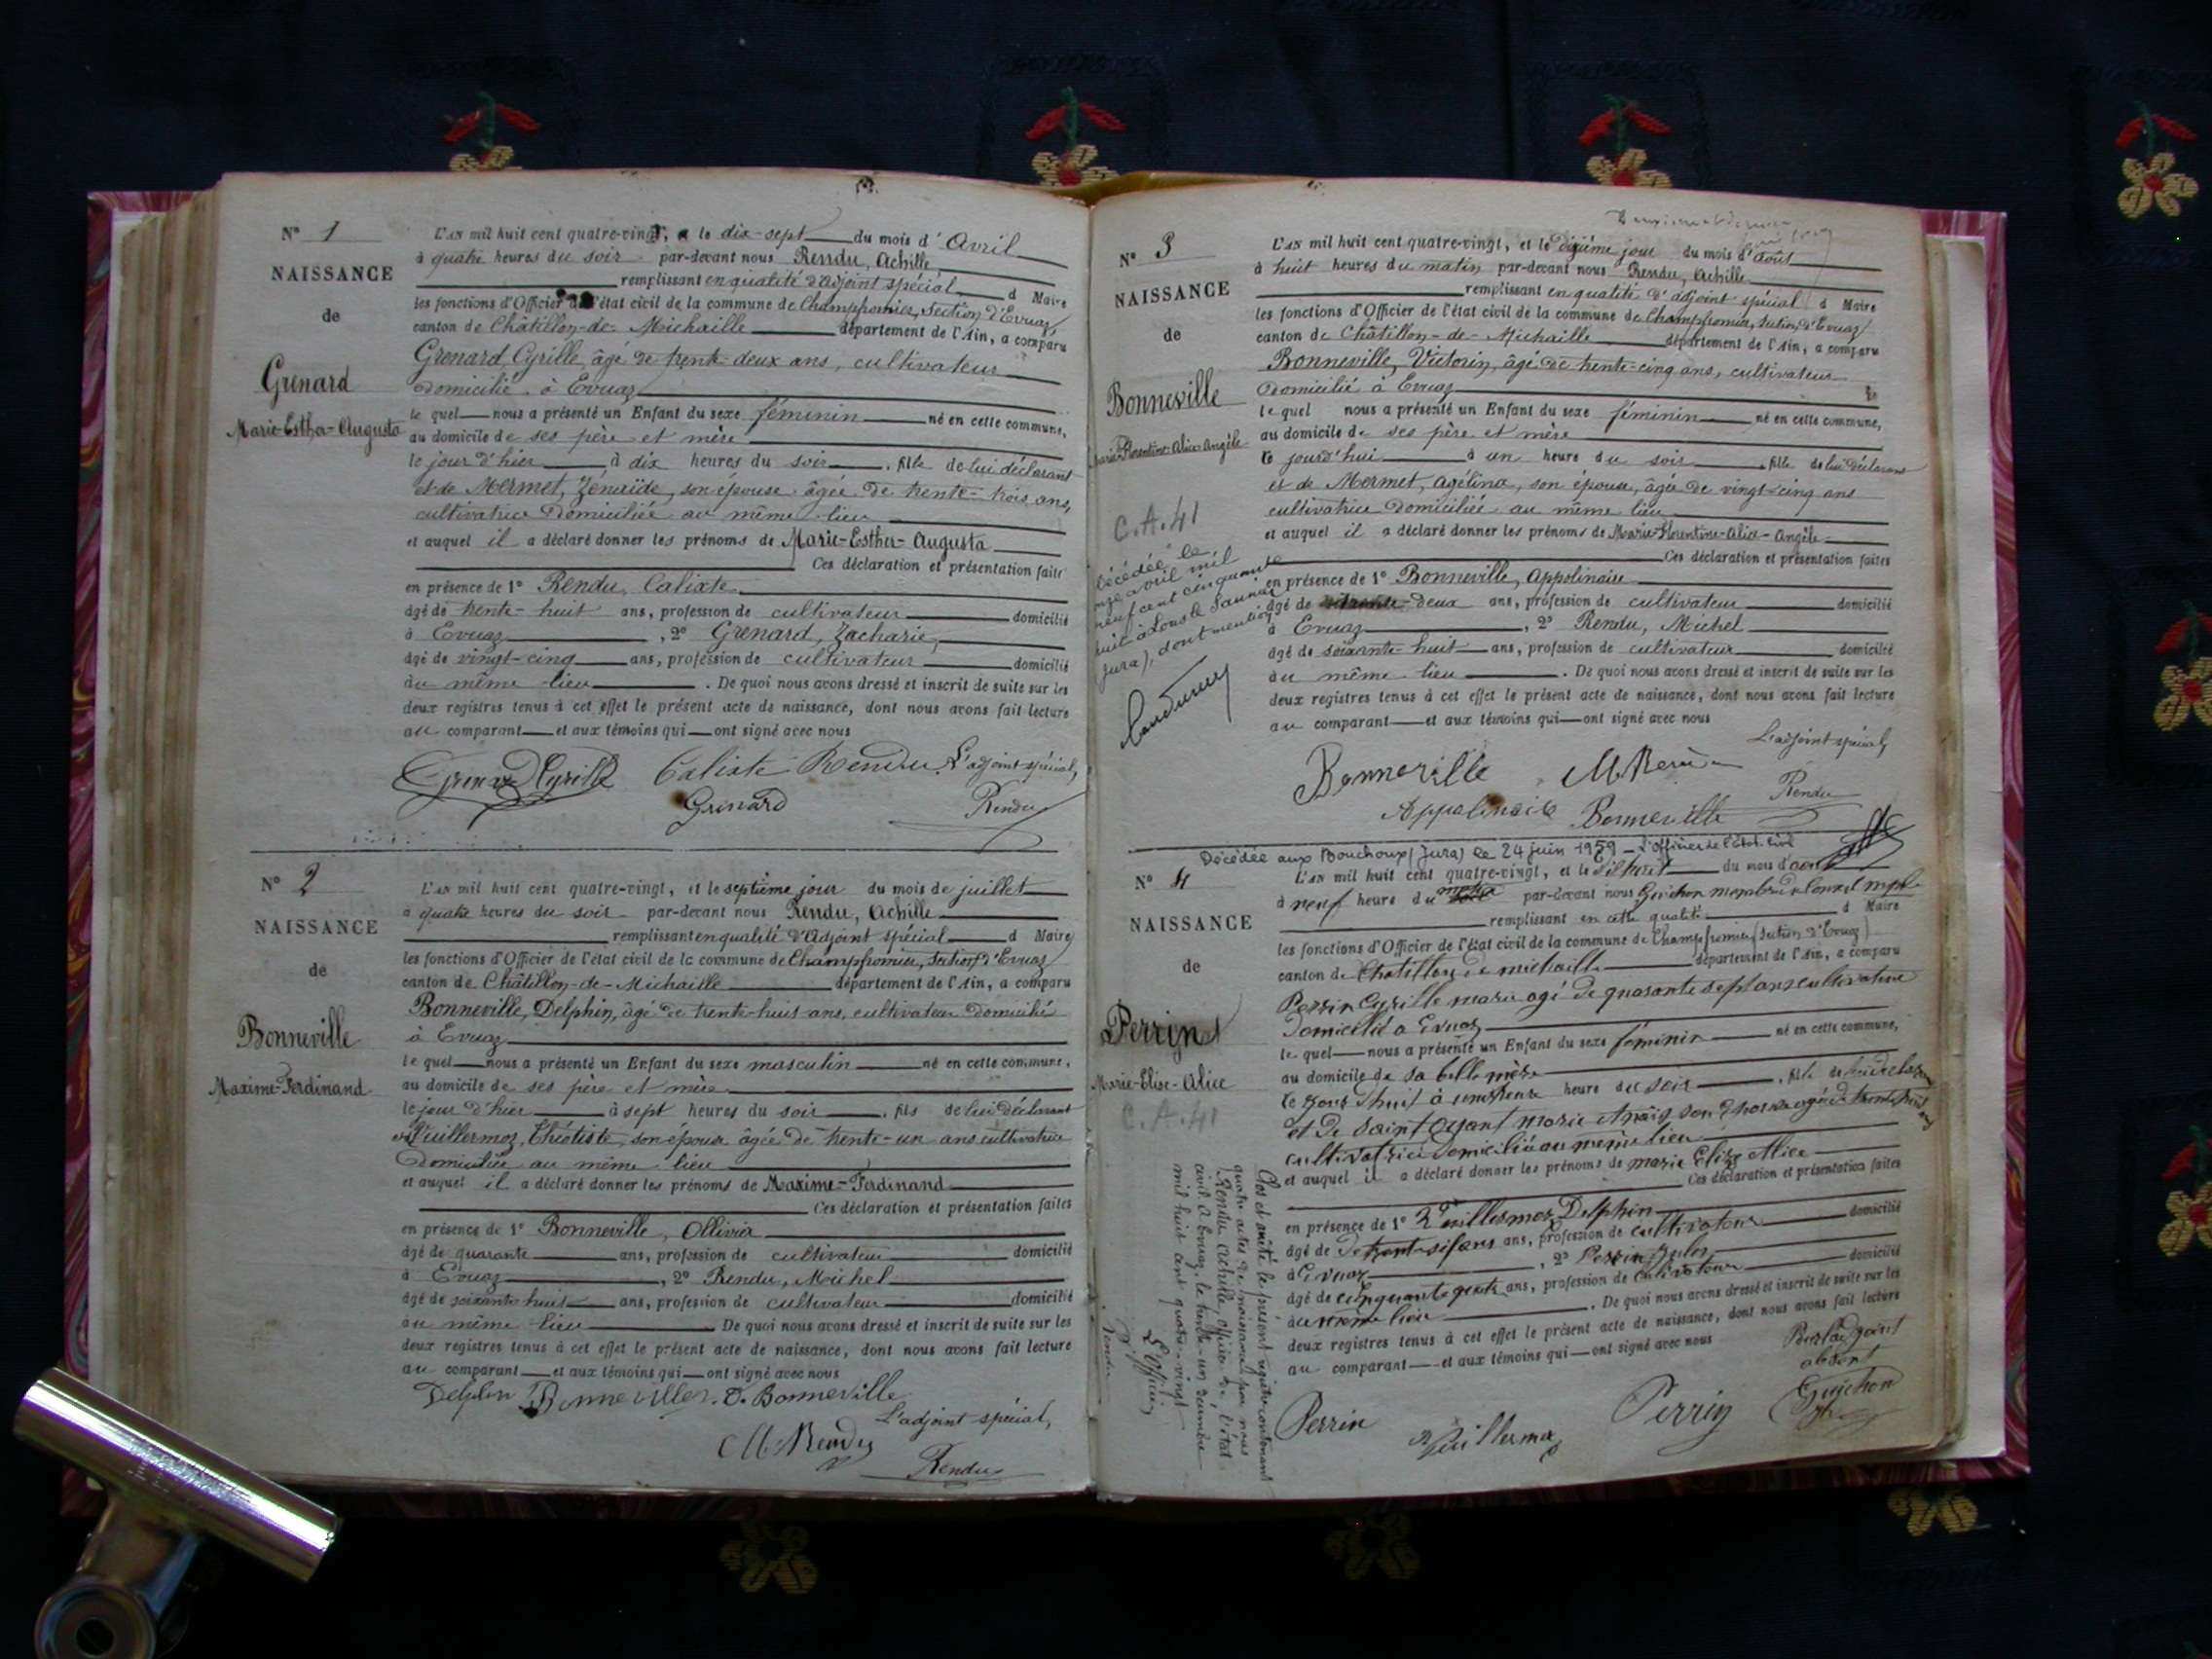 N° 1
NAISSANCE
de
Grenard
Marie-Esther-Augusta
L'an mil huit cent quatre-vingt, le dix-sept du mois d'Avril
à quatre heures du soir par-devant nous Rendu, Achille
remplissant en qualité d'adjoint spécial d Maire
les fonctions d'Officier de l'état civil de la commune de Champfromier, Section d'Evuaz
canton de Châtillon-de-Michaille département de l'Ain, a comparu
Grenard, Cyrille, âgé de trente-deux ans, cultivateur
domicilié à Evuaz
le quel nous a présenté un Enfant du sexe féminin né en cette commune,
au domicile de ses père et mère
le jour d'hier à dix heures du soir, fille de lui déclarant
et de Mermet, Zenaïde, son épouse âgée de trente-trois ans,
cultivatrice domiciliée au même lieu
et auquel il a déclaré donner les prénoms de Marie-Esther-Augusta
Ces déclaration et présentation faites
en présence de 1° Rendu, Calixte
âgé de trente-huit ans, profession de cultivateur domicilié
à Evuaz, 2° Grenard, Zacharie,
âgé de vingt-cinq ans, profession de cultivateur domicilié
au même lieu. De quoi nous avons dressé et inscrit de suite sur les
deux registres tenus à cet effet le présent acte de naissance, dont nous avons fait lecture
au comparant et aux témoins qui ont signé avec nous
Grenard Cyrille Calixte Rendu L'adjoint spécial,
Grenard Rendu
N° 2
NAISSANCE
de
Bonneville
Maxime-Ferdinand
L'an mil huit cent quatre-vingt, et le septième jour du mois de juillet
à quatre heures du soir par-devant nous Rendu, Achille
remplissant en qualité d'Adjoint spécial d Maire
les fonctions d'Officier de l'état civil de la commune de Champfromier, Section d'Evuaz
canton de Châtillon-de-Michaille département de l'Ain, a comparu
Bonneville, Delphin, âgé de trente-huit ans, cultivateur domicilié
à Evuaz
le quel nous a présenté un Enfant du sexe masculin né en cette commune,
au domicile de ses père et mère
le jour d'hier à sept heures du soir, fils de lui déclarant
et Vuillermoz, Théotiste, son épouse âgée de trente-un ans cultivatrice
Domiciliée au même lieu
et auquel il a déclaré donner les prénoms de Maxime-Ferdinand
Ces déclaration et présentation faites
en présence de 1° Bonneville, Ollivier
âgé de quarante ans, profession de cultivateur domicilié
à Evuaz, 2° Rendu, Michel
âgé de soixante huit ans, profession de cultivateur domicilié
au même lieu De quoi nous avons dressé et inscrit de suite sur les
deux registres tenus à cet effet le présent acte de naissance, dont nous avons fait lecture
au comparant et aux témoins qui ont signé avec nous
Delphin Bonneville O. Bonneville
L'adjoint spécial,
M. Rendu
Rendu
N° 3
NAISSANCE
de
Bonneville
Marie-Florentine-Alice-Angèle
C.A. 41
Décédée le
onze avril mil
neuf cent cinquante
huit à Lons le Saunier
(Jura), dont mention
L'an mil huit cent quatre-vingt, et le dixième jour du mois d'août
à huit heures du matin par-devant nous Rendu, Achille
remplissant en qualité d'adjoint spécial d Maire
les fonctions d'Officier de l'état civil de la commune de Champfromier, Section d'Evuaz
canton de Châtillon-de-Michaille département de l'Ain, a comparu
Bonneville, Victorin, âgé de trente-cinq ans, cultivateur
domicilié à Evuaz
le quel nous a présenté un Enfant du sexe féminin né en cette commune,
au domicile de ses père et mère
le jourd'hui à un heure du soir, fille de lui déclarant
et de Mermet, Agélina, son épouse, âgée de vingt-cinq ans
cultivatrice domiciliée au même lieu
et auquel il a déclaré donner les prénoms de Marie-Florentine-Alice-Angèle
Ces déclaration et présentation faites
en présence de 1° Bonneville, Appolinaire
âgé de deux ans, profession de cultivateur domicilié
à Evuaz, 2° Rendu, Michel
âgé de soixante-huit ans, profession de cultivateur domicilié
au même lieu. De quoi nous avons dressé et inscrit de suite sur les
deux registres tenus à cet effet le présent acte de naissance, dont nous avons fait lecture
au comparant et aux témoins qui ont signé avec nous
L'adjoint spécial,
Bonneville M. Rendu
Rendu
Appolinaire Bonneville
Décédée aux Bouchoux (Jura) le 24 juin 1959 - L'officier de l'état civil
N° 4
NAISSANCE
de
Perrin
Marie-Elise-Alice
C.A. 41
L'an mil huit cent quatre-vingt, et le dixhuit du mois d'aout
à neuf heure du matin par-devant nous Guichon membre du Conseil mpl
remplissant en cette qualité d Maire
les fonctions d'Officier de l'état civil de la commune de Champfromier (Section d'Evuaz)
canton de Chatillon de michaille département de l'Ain, a comparu
Perrin Cyrille marie agé de quarante sept ans cultivateur
domicilié a Evuaz
le quel nous a présenté un Enfant du sexe féminin né en cette commune,
au domicile de sa belle mère
le jour d'hui à une heure du soir, fille de lui déclarant
et de Saint Oyant marie Anaïs son epouse agée de trente huit ans
cultivatrice domiciliée au même lieu
et auquel il a déclaré donner les prénoms de marie Elise Alice
Ces déclaration et présentation faites
en présence de 1° Vuillermoz Delphin
âgé de trente six ans ans, profession de cultivateur domicilié
à Evuaz, 2° Perrin Jules
âgé de cinquante quatre ans, profession de cultivateur domicilié
au même lieu. De quoi nous avons dressé et inscrit de suite sur les
deux registres tenus à cet effet le présent acte de naissance, dont nous avons fait lecture
au comparant et aux témoins qui ont signé avec nous
Pour l'adjoint
absent
Guichon
Perrin Vuillermoz Perrin
Clos et arrêté le présent registre contenant
quatre actes de naissance par nous
Rendu Achille officier de l'état
civil. A Evuaz, le trente-un décembre
mil huit cent quatre-vingt
L'officier,
Rendu